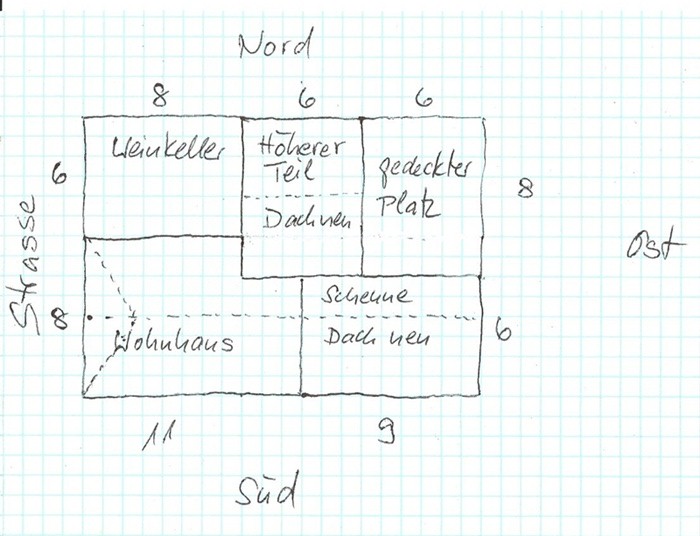 Nord
8 6 6
Weinkeller
Höherer
Teil
Dach neu
gedeckter
Platz
6
8
Strasse
Ost
8
Wohnhaus
Scheune
Dach neu
6
11
9
Süd